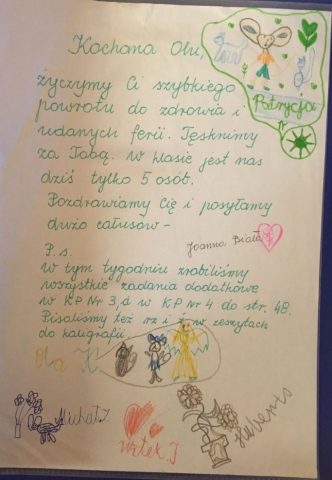 Kochana Olu,
Patrycja
życzymy Ci szybkiego
powrotu do zdrowia i
udanych ferii. Tęsknimy
za Tobą. W klasie jest nas
dziś tylko 5 osób.
Pozdrawiamy Cię i posyłamy
dużo całusow –
Joanna Biała
P.s.
W tym tygodniu zrobiliśmy
wszystkie zadania dodatkowe
w KP Nr 3, a w KP Nr 4 do str. 48.
Pisaliśmy też rz i ż w zeszytach
do kaligrafii.
Ola K
Michał Z
Witek J
Huberts